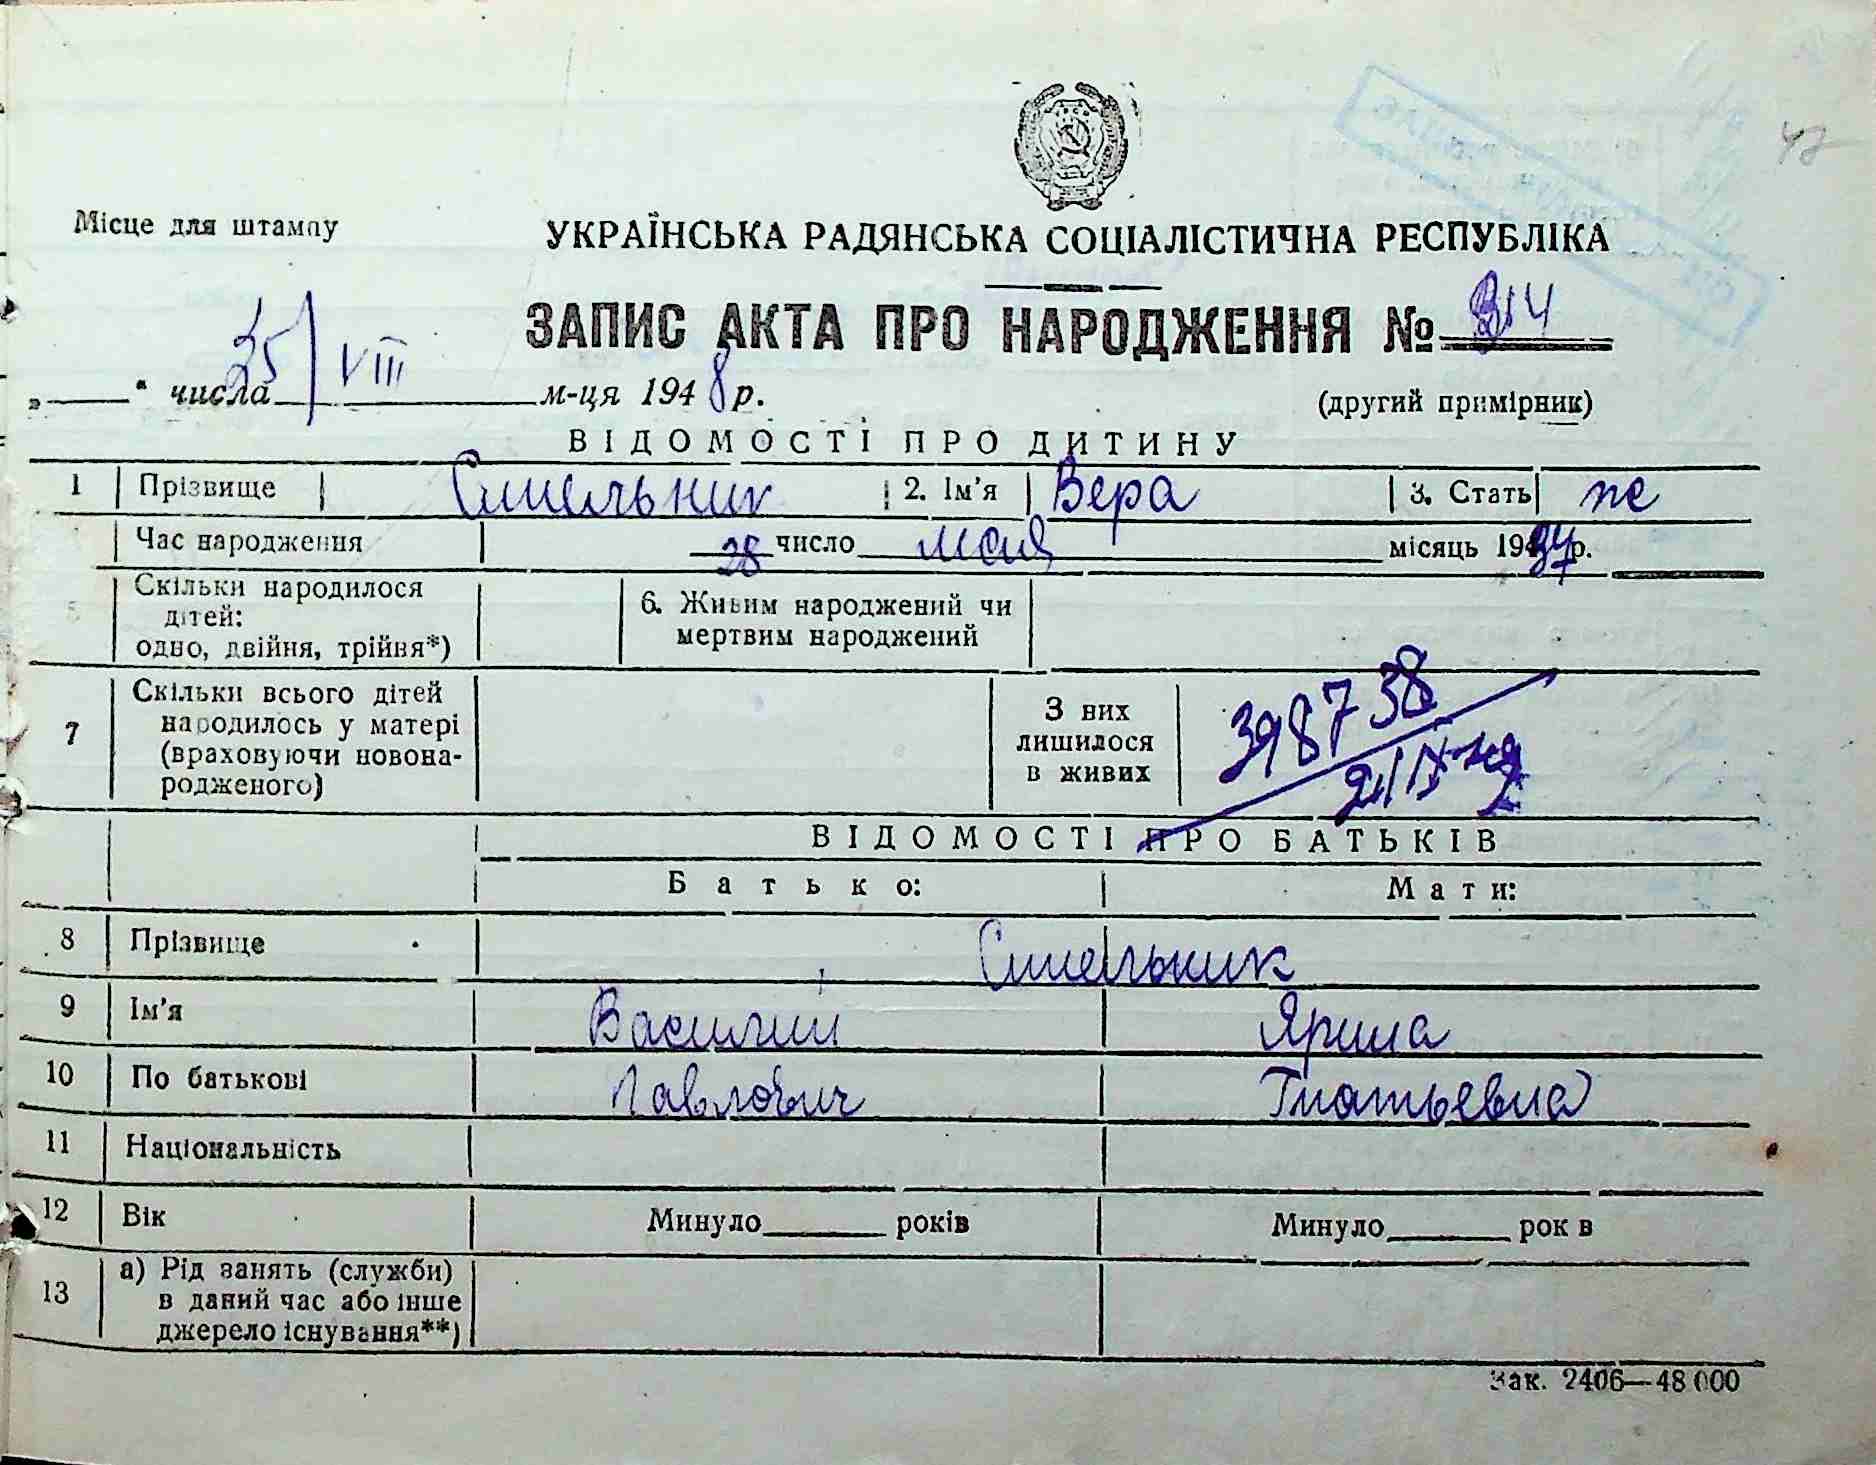 47
Місце для штампу
УКРАЇНСЬКА РАДЯНСЬКА СОЦІАЛІСТИЧНА РЕСПУБЛІКА
ЗАПИС АКТА ПРО НАРОДЖЕННЯ № 314
„ " числа 25/VIII м-ця 1948 р.
(другий примірник)
ВІДОМОСТІ ПРО ДИТИНУ
1 Прізвище Синельник 2. Ім'я Вера 3. Стать же
Час народження 28 число мая місяць 1937 р.
5 Скільки народилося дітей: одно, двійня, трійня*) 6. Живим народжений чи мертвим народжений
7 Скільки всього дітей народилось у матері (враховуючи новонародженого) З них лишилося в живих
398738
ВІДОМОСТІ ПРО БАТЬКІВ
Батько: Мати:
8 Прізвище Синельник
9 Ім'я Василий Ярина
10 По батькові Павлович Гнатьевна
11 Національність
12 Вік Минуло років Минуло рок в
13 а) Рід занять (служби) в даний час або інше джерело існування**)
Зак. 2406—48 000